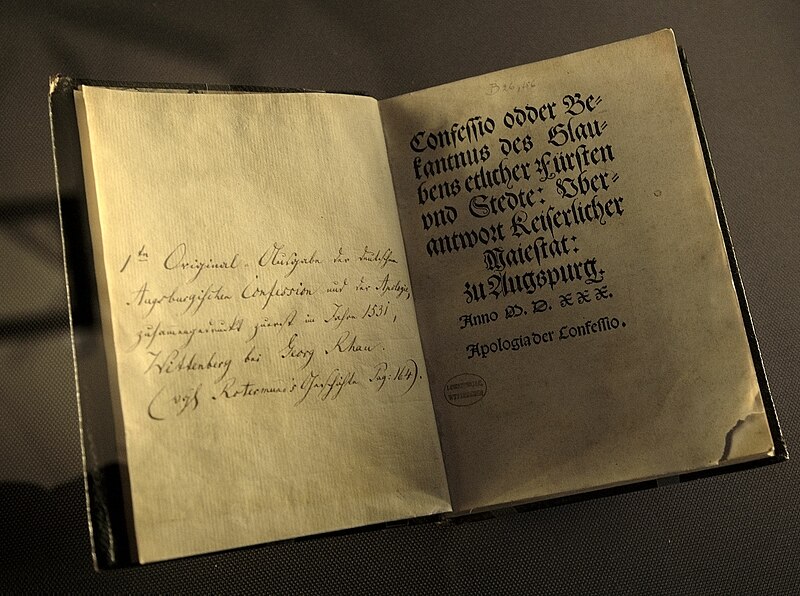 1te Original-Ausgabe der deutschen
Augsburgischen Confession und der Apologie,
zusamengedruckt zuerst im Jahre 1531,
Wittenberg bei Georg Rhau.
(vgl Rotermund's Geschichte Pag: 164).
Confessio odder Be-
kantnus des Glau-
bens etlicher Fürsten
vnd Stedte: Vber-
antwort Keiserlicher
Maiestat:
zu Augspurg.
Anno M. D. XXX.
Apologia der Confessio.